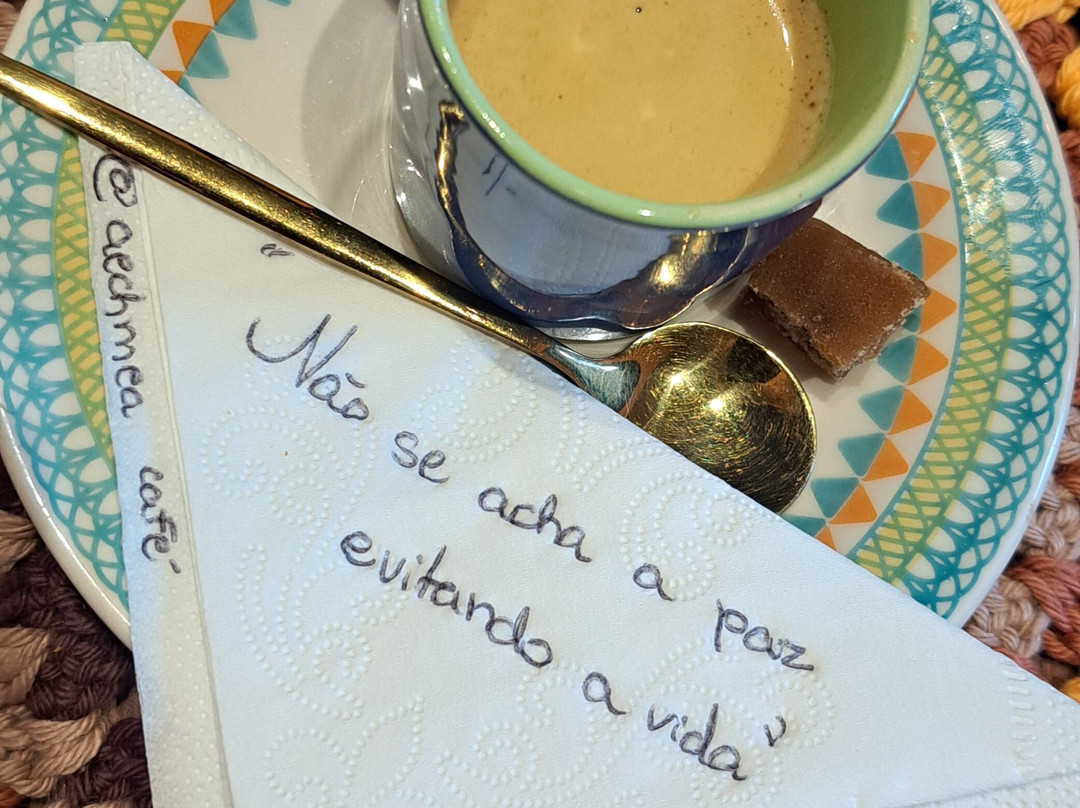 @aechmea café
"Não se acha a paz
evitando a vida"